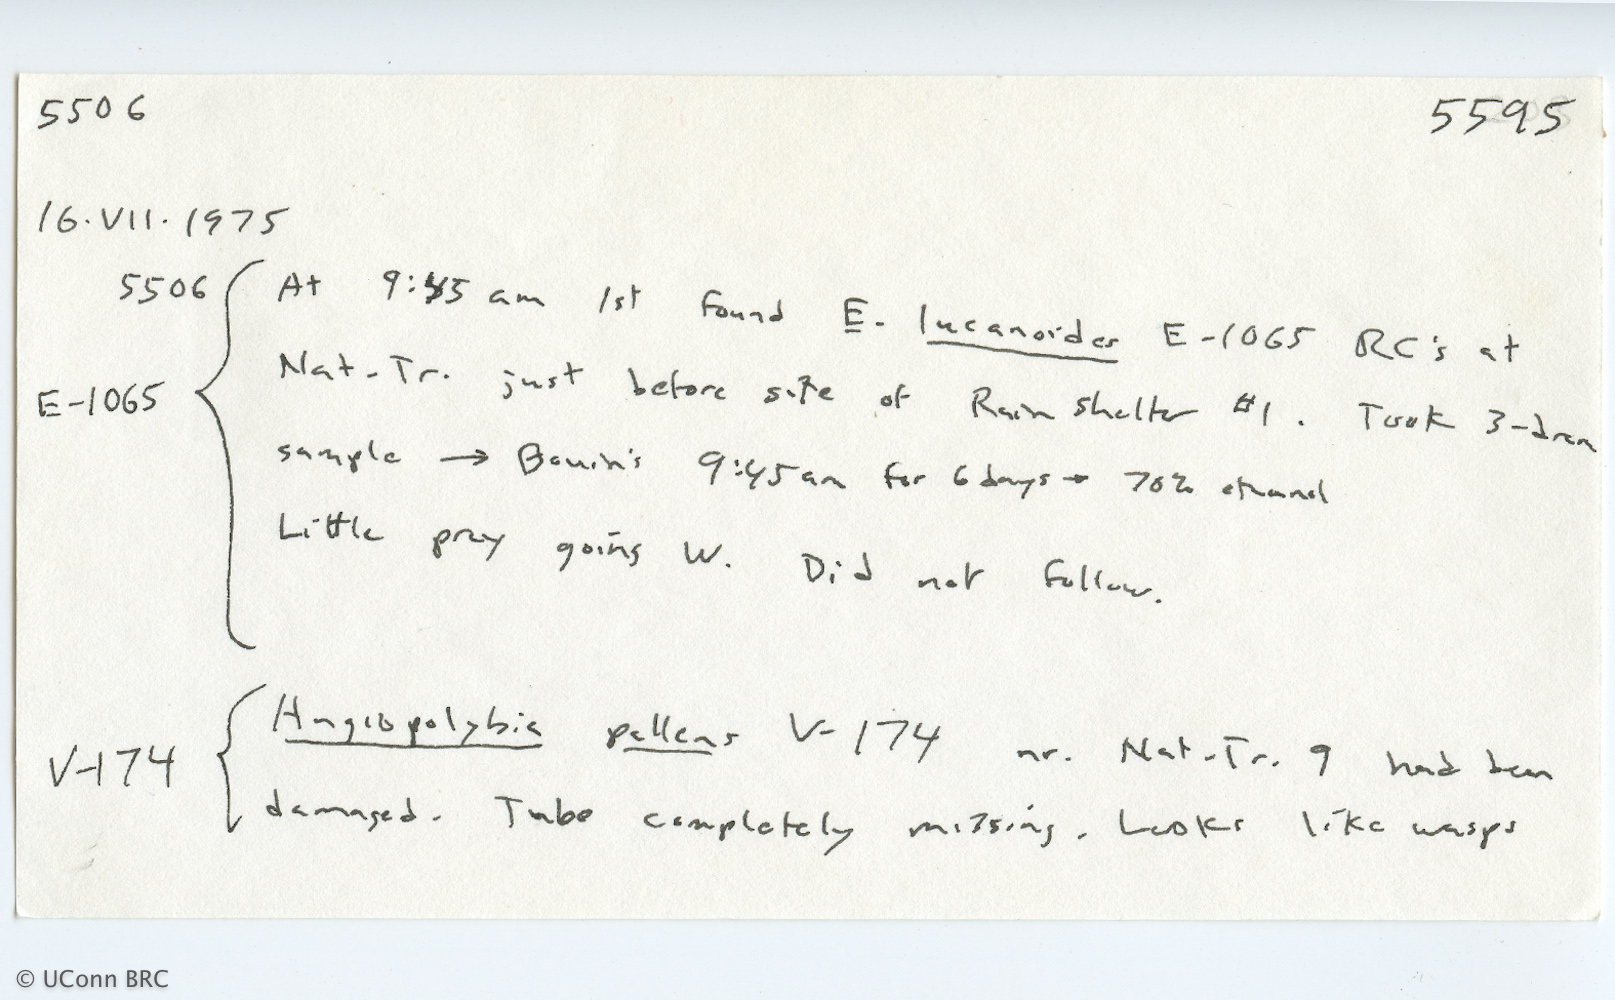 5506 5595
16.VII.1975
5506 At 9:45 am 1st found E. lucanoides E-1065 RC's at
E-1065 Nat-Tr. just before site of Rain shelter #1. Took 3-dram
sample → Bouin's 9:45 am for 6 days → 70% ethanol
Little prey going W. Did not follow.
V-174 Angiopolybia pallens V-174 nr. Nat-Tr. 9 had been
damaged. Tube completely missing. Looks like wasps
© UConn BRC